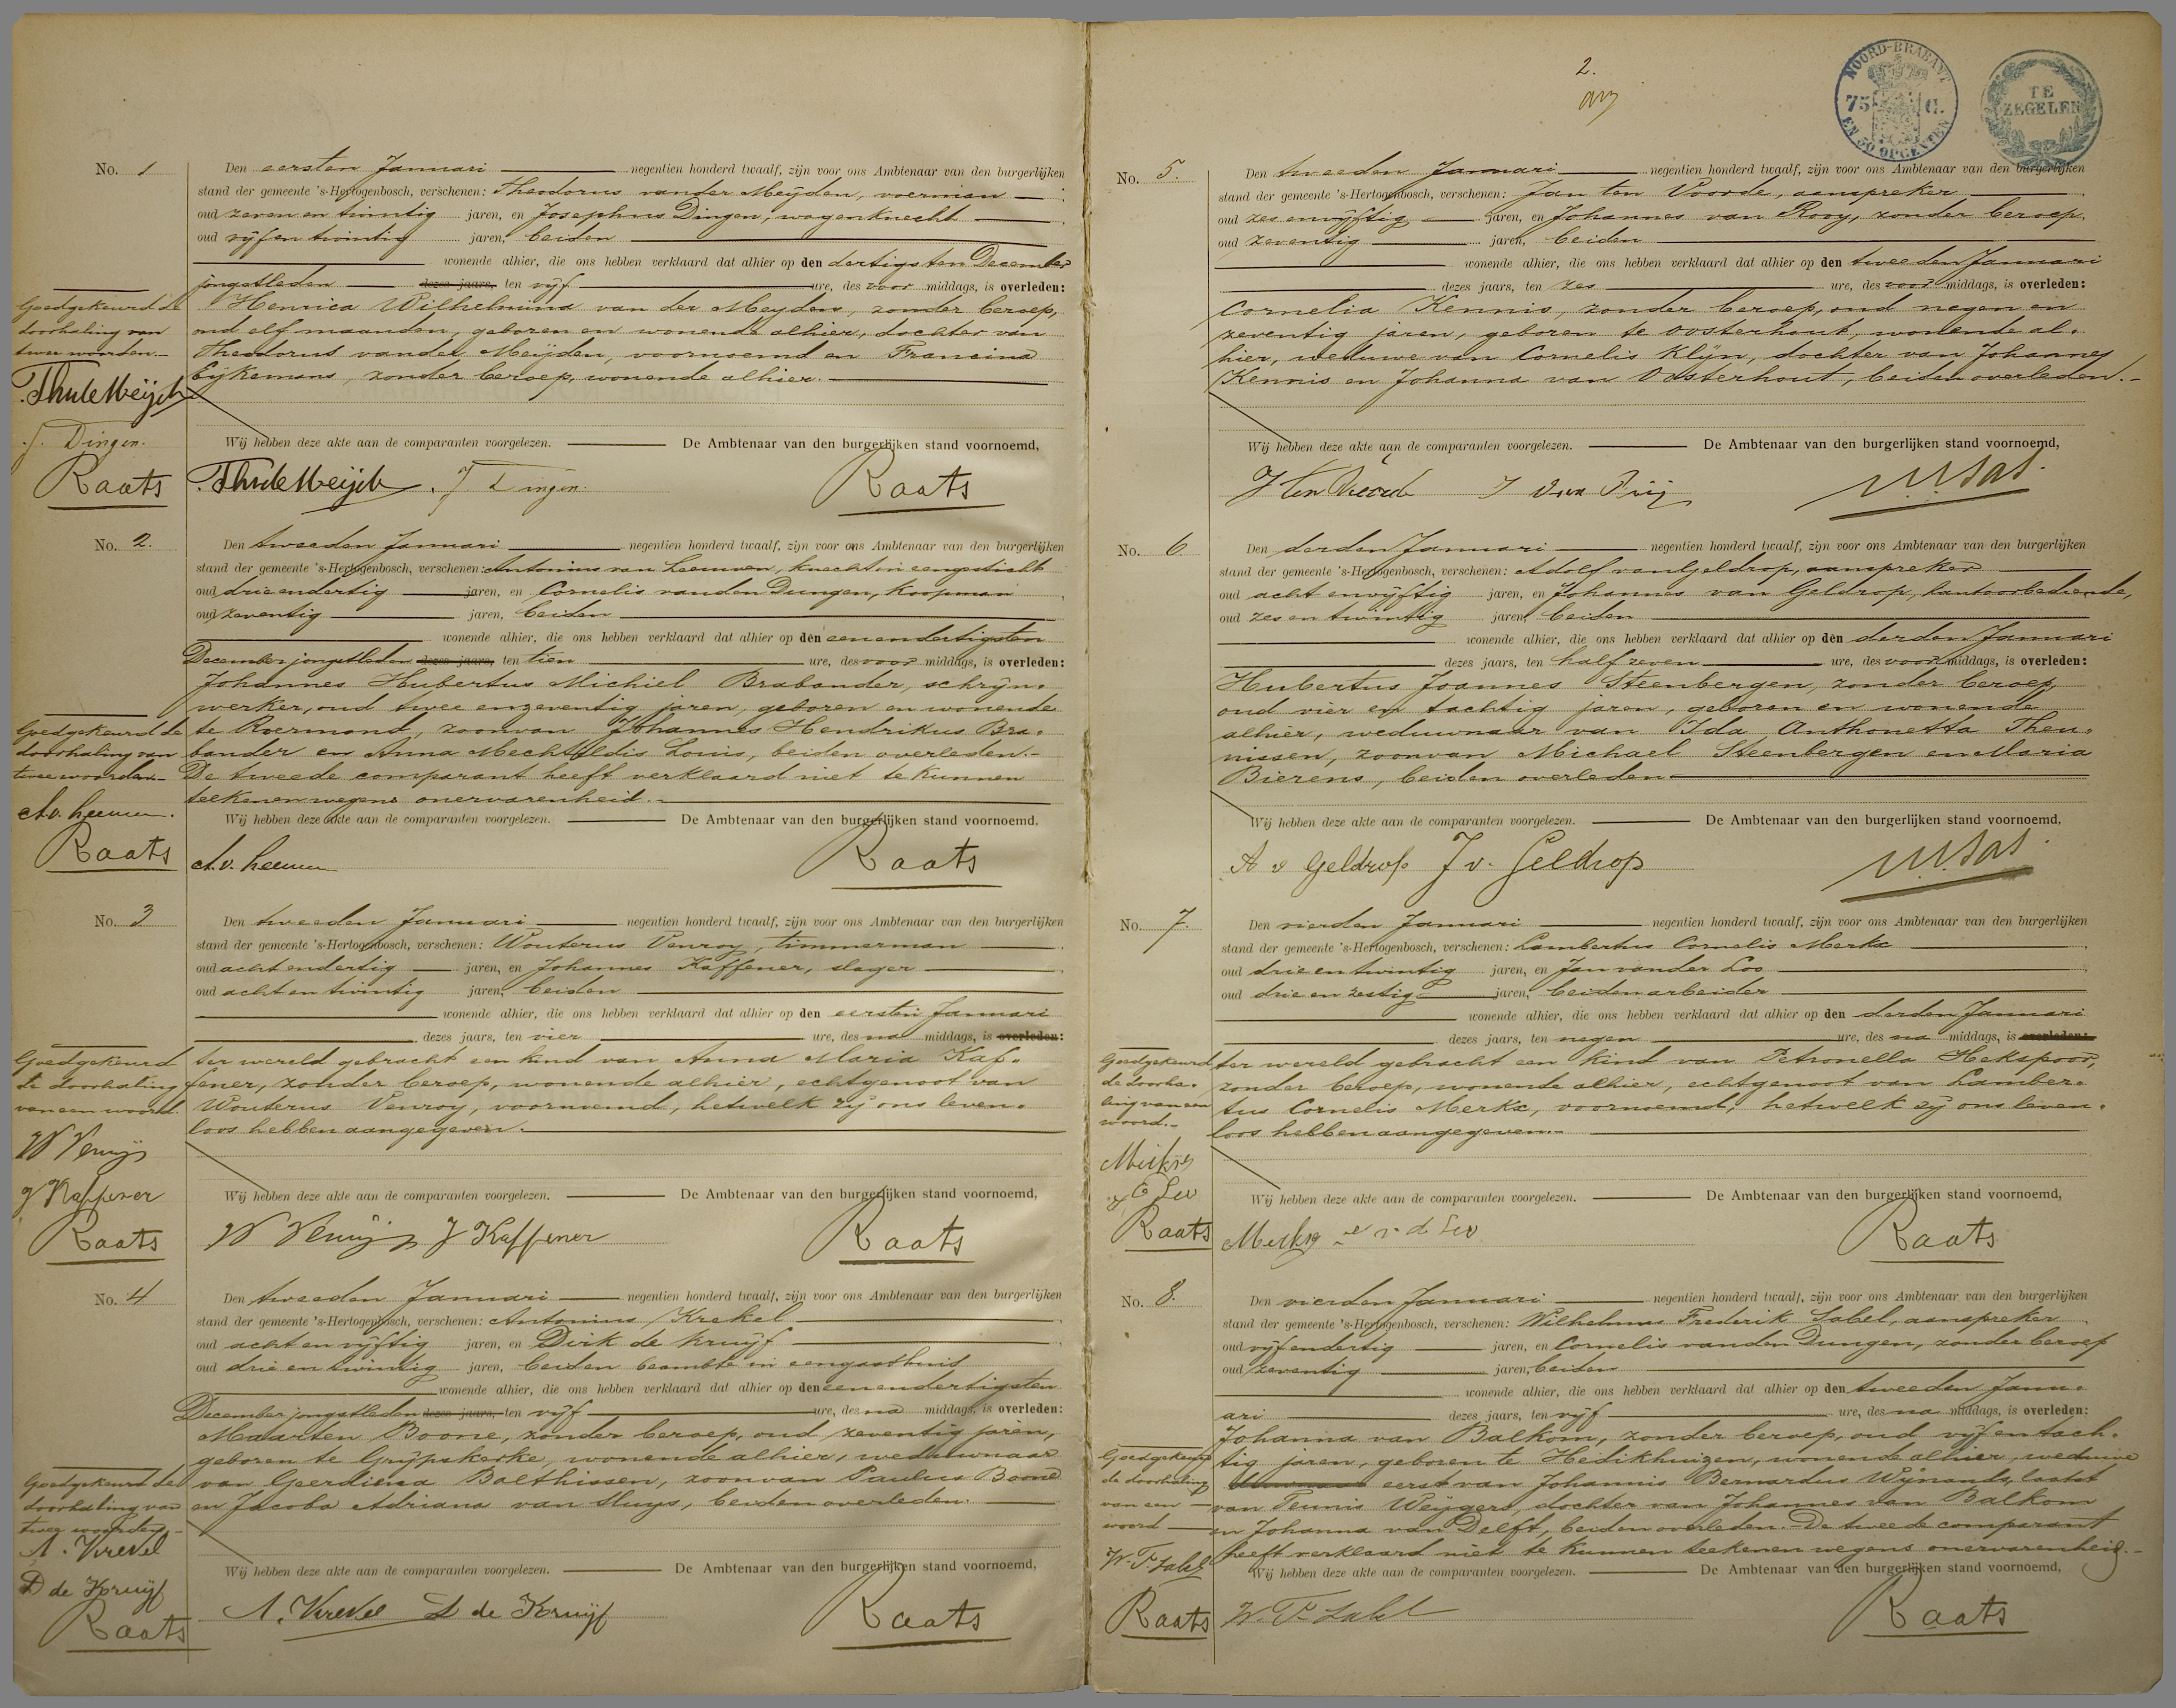 No. 1
Den eersten Januari negentien honderd twaalf, zijn voor ons Ambtenaar van den burgerlijken
stand der gemeente 's-Hertogenbosch, verschenen: Theodorus vander Meijden, voerman
oud zeven en twintig jaren, en Josephus Dingen, wagenknecht
oud vijf en twintig jaren, beiden
wonende alhier, die ons hebben verklaard dat alhier op den dertigsten December
jongstleden dezes jaars, ten vijf ure, des voor middags, is overleden:
Henrica Wilhelmina van der Meyden, zonder beroep,
oud elf maanden, geboren en wonende alhier, dochter van
Theodorus vander Meijden, voornoemd en Francina
Eijkemans, zonder beroep, wonende alhier.
Goedgekeurd de
doorhaling van
twee woorden.
J. Dingen.
Raats
Wij hebben deze akte aan de comparanten voorgelezen. De Ambtenaar van den burgerlijken stand voornoemd,
J. Dingen. Raats
No. 2.
Den tweeden Januari negentien honderd twaalf, zijn voor ons Ambtenaar van den burgerlijken
stand der gemeente 's-Hertogenbosch, verschenen: Antonius van Leeuwen, knecht in een gesticht
oud drie en dertig jaren, en Cornelis vanden Dungen, koopman
oud zeventig jaren, beiden
wonende alhier, die ons hebben verklaard dat alhier op den een en dertigsten
December jongstleden dezes jaars, ten tien ure, des voor middags, is overleden:
Johannes Hubertus Michiel Brabander, schrijn-
werker, oud twee en zeventig jaren, geboren en wonende
te Roermond, zoon van Johannes Hendrikus Bra-
bander en Anna Mechtildis Louis, beiden overleden.-
De tweede comparant heeft verklaard niet te kunnen
teekenen wegens onervarenheid.
Goedgekeurd de
doorhaling van
twee woorden.
A.v. Leeuwen.
Raats
Wij hebben deze akte aan de comparanten voorgelezen. De Ambtenaar van den burgerlijken stand voornoemd.
A.v. Leeuwen Raats
No. 3
Den tweeden Januari negentien honderd twaalf, zijn voor ons Ambtenaar van den burgerlijken
stand der gemeente 's-Hertogenbosch, verschenen: Wouterus Venroy, timmerman
oud acht en dertig jaren, en Johannes Kaffener, slager
oud acht en twintig jaren, beiden
wonende alhier, die ons hebben verklaard dat alhier op den eersten Januari
dezes jaars, ten vier ure, des na middags, is overleden:
ter wereld gebracht een kind van Anna Maria Kaf-
fener, zonder beroep, wonende alhier, echtgenoot van
Wouterus Venroy, voornoemd, hetwelk zij ons leven-
loos hebben aangegeven.
Goedgekeurd
de doorhaling
van een woord.
J Kaffener
Raats
Wij hebben deze akte aan de comparanten voorgelezen. De Ambtenaar van den burgerlijken stand voornoemd,
J Kaffener Raats
No. 4
Den tweeden Januari negentien honderd twaalf, zijn voor ons Ambtenaar van den burgerlijken
stand der gemeente 's-Hertogenbosch, verschenen: Antonius Krekel
oud acht en vijftig jaren, en Dirk de Kruijf
oud drie en twintig jaren, beiden beambte in een gasthuis
wonende alhier, die ons hebben verklaard dat alhier op den een en dertigsten
December jongstleden dezes jaars, ten vijf ure, des na middags, is overleden:
Maarten Boone, zonder beroep, oud zeventig jaren,
geboren te Grijpskerke, wonende alhier, weduwnaar
van Geerdiena Balthissen, zoon van Paulus Boone
en Jacoba Adriana van Sluys, beiden overleden.
Goedgekeurd de
doorhaling van
twee woorden
A. Krekel
D de Kruijf
Raats
Wij hebben deze akte aan de comparanten voorgelezen. De Ambtenaar van den burgerlijken stand voornoemd,
A. Krekel D de Kruijf Raats
2.
NOORD-BRABANT
75 C.
EN 50 OPCENTEN
TE
ZEGELEN
No. 5.
Den tweeden Januari negentien honderd twaalf, zijn voor ons Ambtenaar van den burgerlijken
stand der gemeente 's-Hertogenbosch, verschenen: Jan ten Voorde, aanspreker
oud zes en vijftig jaren, en Johannes van Rooy, zonder beroep,
oud zeventig jaren, beiden
wonende alhier, die ons hebben verklaard dat alhier op den tweeden Januari
dezes jaars, ten zes ure, des voor middags, is overleden:
Cornelia Kennis, zonder beroep, oud negen en
zeventig jaren, geboren te Oosterhout, wonende al-
hier, weduwe van Cornelis Klijn, dochter van Johannes
Kennis en Johanna van Oosterhout, beiden overleden.-
Wij hebben deze akte aan de comparanten voorgelezen. De Ambtenaar van den burgerlijken stand voornoemd,
J ten Voorde J van Rooij
No. 6
Den derden Januari negentien honderd twaalf, zijn voor ons Ambtenaar van den burgerlijken
stand der gemeente 's-Hertogenbosch, verschenen: Adolf van Geldrop, aanspreker
oud acht en vijftig jaren, en Johannes van Geldrop, kantoorbediende,
oud zes en twintig jaren, beiden
wonende alhier, die ons hebben verklaard dat alhier op den derden Januari
dezes jaars, ten half zeven ure, des voor middags, is overleden:
Hubertus Joannes Steenbergen, zonder beroep,
oud vier en tachtig jaren, geboren en wonende
alhier, weduwnaar van Ida Anthonetta Theu-
nissen, zoon van Michael Steenbergen en Maria
Bierens, beiden overleden
Wij hebben deze akte aan de comparanten voorgelezen. De Ambtenaar van den burgerlijken stand voornoemd,
A v Geldrop J v. Geldrop
No. 7.
Den vierden Januari negentien honderd twaalf, zijn voor ons Ambtenaar van den burgerlijken
stand der gemeente 's-Hertogenbosch, verschenen: Lambertus Cornelis Merkx
oud drie en twintig jaren, en Jan vander Loo
oud drie en zestig jaren, beiden arbeider
wonende alhier, die ons hebben verklaard dat alhier op den derden Januari
dezes jaars, ten negen ure, des na middags, is overleden:
ter wereld gebracht een kind van Petronella Hekspoor,
zonder beroep, wonende alhier, echtgenoot van Lamber-
tus Cornelis Merkx, voornoemd, hetwelk zij ons leven-
loos hebben aangegeven.-
Goedgekeurd
de doorha-
ling van een
woord.-
Raats
Wij hebben deze akte aan de comparanten voorgelezen. De Ambtenaar van den burgerlijken stand voornoemd,
Raats
No. 8.
Den vierden Januari negentien honderd twaalf, zijn voor ons Ambtenaar van den burgerlijken
stand der gemeente 's-Hertogenbosch, verschenen: Wilhelmus Frederik Sabel, aanspreker
oud vijf en dertig jaren, en Cornelis vanden Dungen, zonder beroep
oud zeventig jaren, beiden
wonende alhier, die ons hebben verklaard dat alhier op den tweeden Janu-
ari dezes jaars, ten vijf ure, des na middags, is overleden:
Johanna van Balkom, zonder beroep, oud vijf en tach-
tig jaren, geboren te Hedikhuizen, wonende alhier, weduwe
eerst van Johannis Bernardus Wijnands, laatst
van Teunis Weijgers, dochter van Johannes van Balkom
en Johanna van Delft, beiden overleden. De tweede comparant
heeft verklaard niet te kunnen teekenen wegens onervarenheid.-
Goedgekeurd
de doorhaling
van een
woord
W. F. Sabel
Raats
Wij hebben deze akte aan de comparanten voorgelezen. De Ambtenaar van den burgerlijken stand voornoemd,
W. F. Sabel Raats